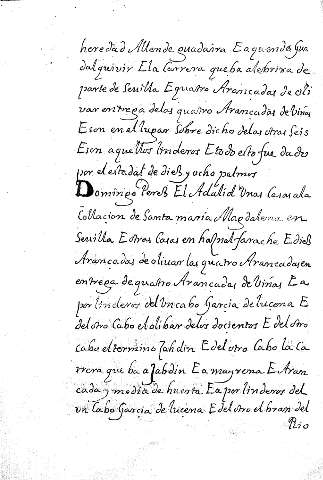 heredad Allende guadaira E aquende Gua
dalquivir E la Carrera que ba a lebrixa de
parte de Sevilla E quatro Arançadas de oli
var entrega de los quatro Arançadas de Viñas
E son en el lugar sobre dicho de las otras seis
E son aquellos linderos E todo esto fue dado
por el estadal de diez y ocho palmos
Domingo Perez El Adalid Unas Casas a la
Collacion de Santa maria Magdalena en
Sevilla E otras Casas en haznalfarache E diez
Arançadas de olivar las quatro Arançadas en
entrega de quatro Arançadas de Viñas E a
por linderos del Un cabo Garcia de lucena E
del otro Cabo el olibar de los docientos E del otro
cabo el termino Zahdin E del otro Cabo la Ca
rrera que ba a Zabdin E a mayrena E Aran
cada y media de huerta E a por linderos del
un Cabo Garcia de lucena E del otro el bran del
Rio